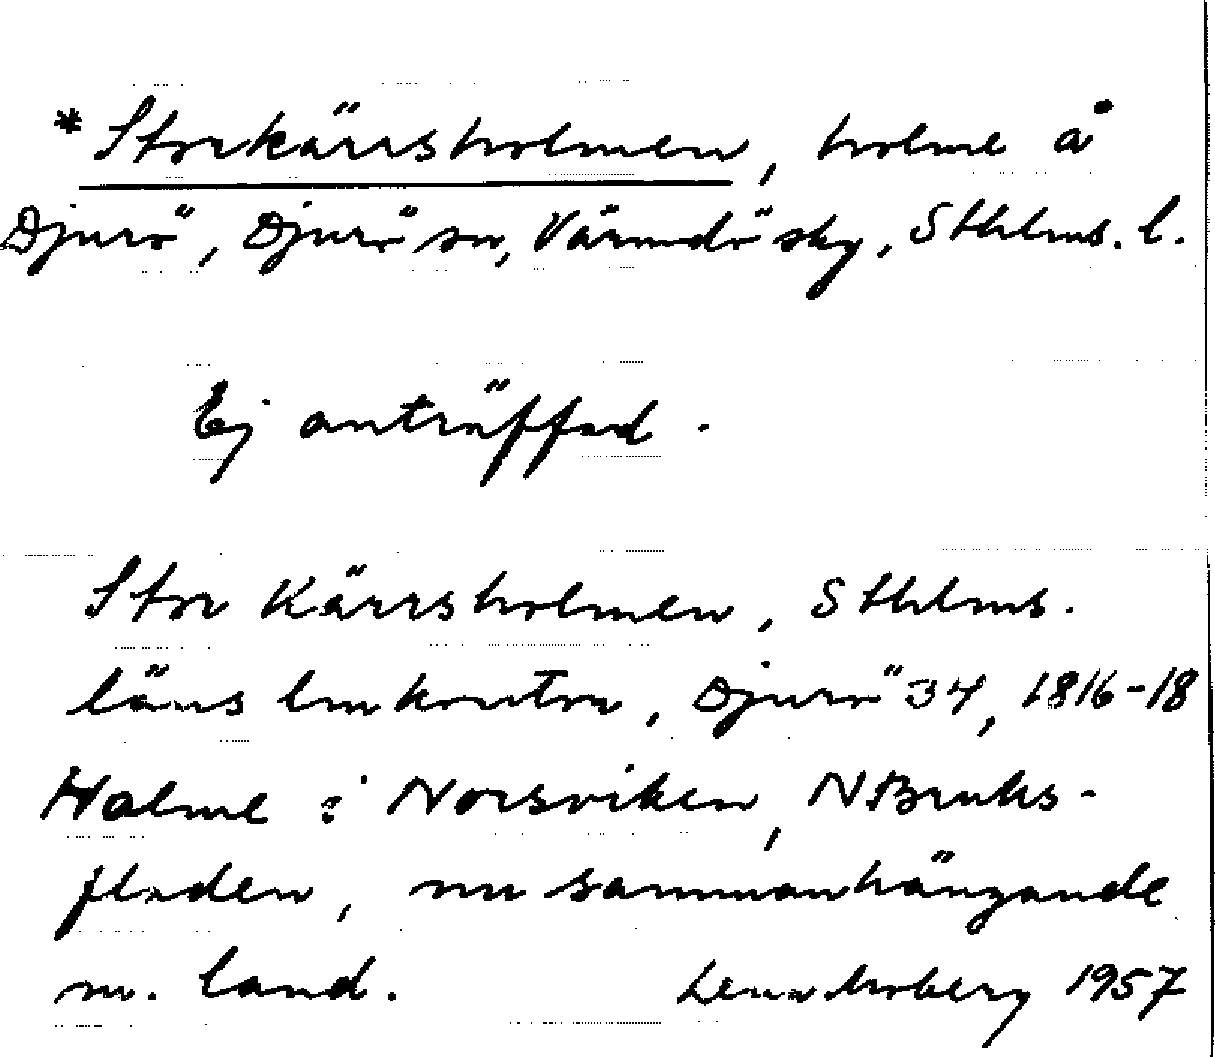 *Storkärrsholmen, holme å
Djurö, Djurö sn, Värmdö sky, Sthlms. l.
Ej anträffad.
Stor Kärrsholmen, Sthlms.
läns lmkontor, Djurö 34, 1816-18
Holme i Norsviken, N Bruks-
fladen, nu sammanhängande
m. land. Lenn. Moberg 1957